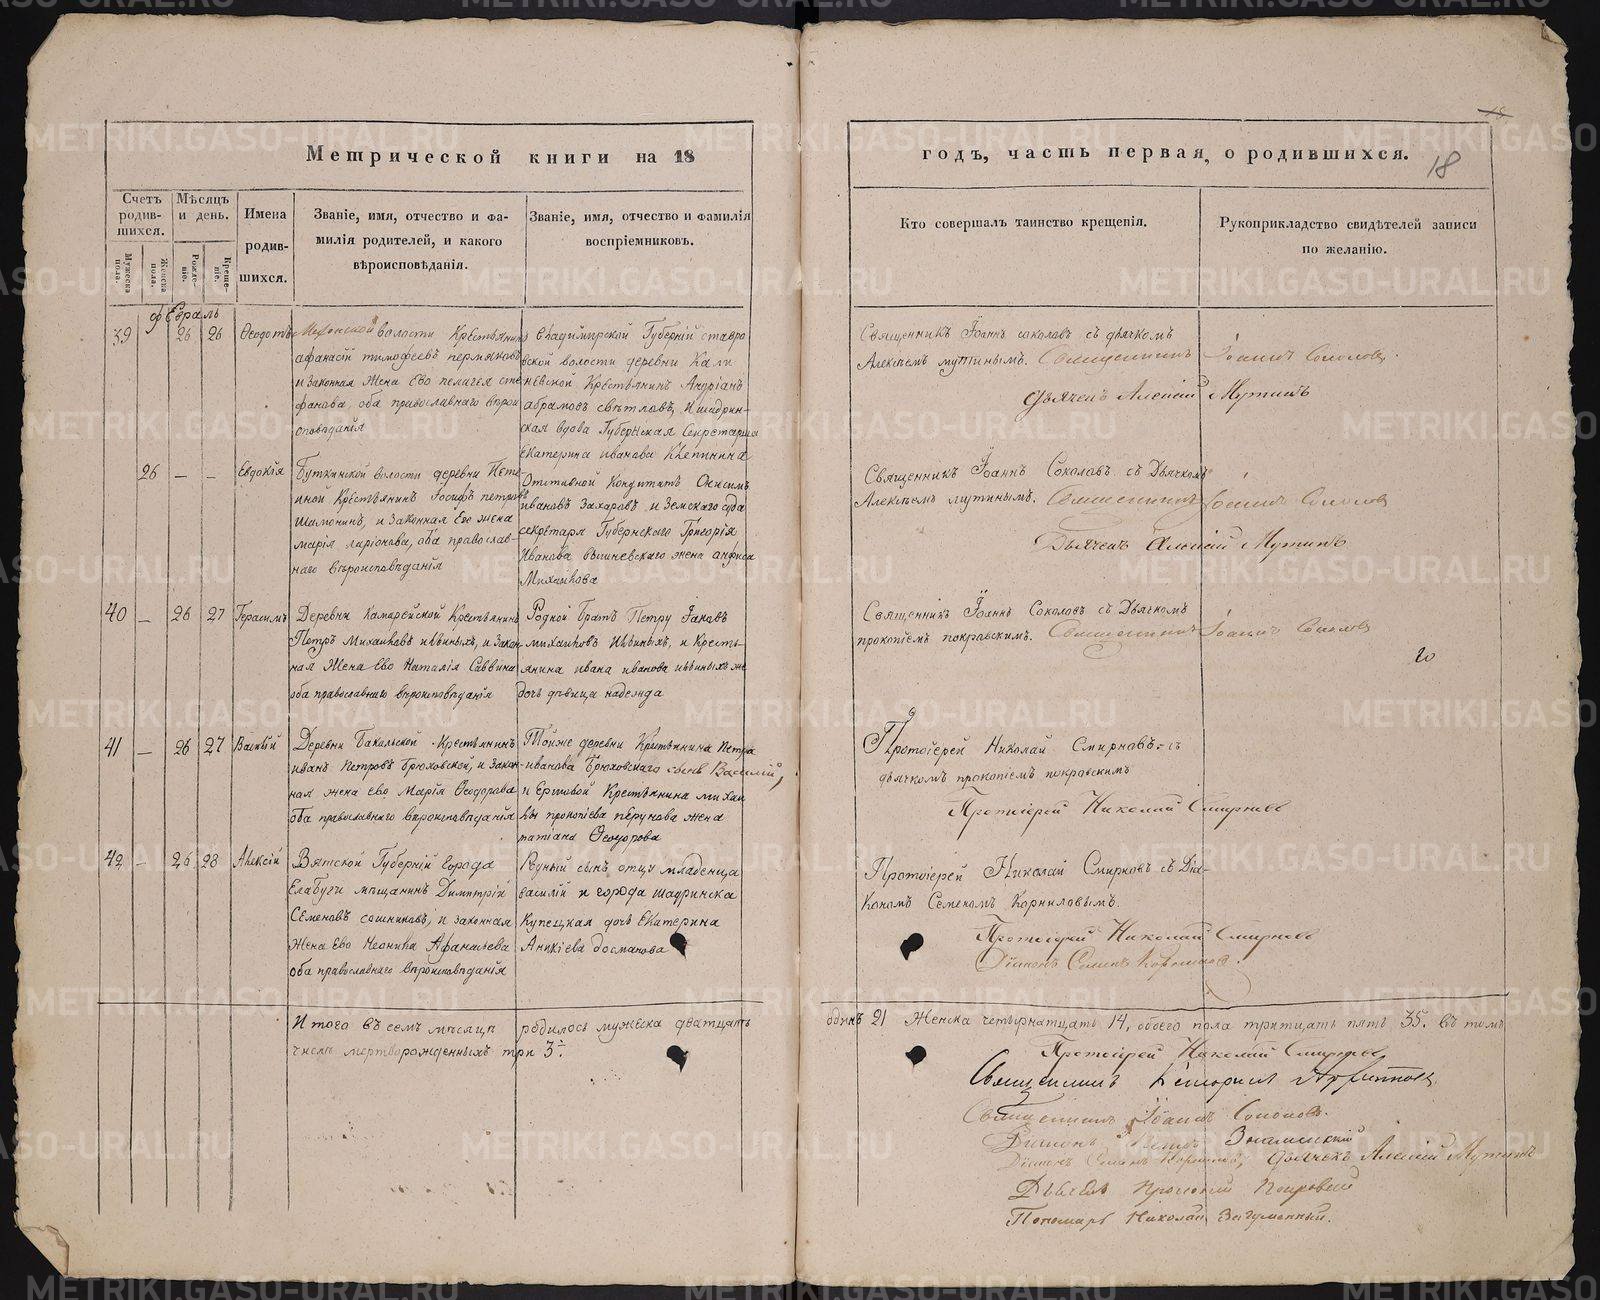 Метрической книги на 18
Счетъ родив-шихся.
Мужеска пола.
Женска пола.
Мѣсяцъ и день.
Рожде-ніе.
Креще-ніе.
Имена
родив-
шихся.
Званіе, имя, отчество и фа-
милія родителей, и какого
вѣроисповѣданія.
Званіе, имя, отчество и фамилія
воспріемниковъ.
февраль
39 26 26 Ѳеодотъ
волости Крестьянинъ
афанасій тимофеевъ пермяковъ
и законная Жена Ево пелагея сте
фанова, оба православнаго вѣрои
сповѣданія
Владимирской Губерніи ставро
вской волости деревни Кали
невской Крестьянинъ Андріанъ
абрамовъ свѣтловъ, и шадрин-
ская вдова Губернская Секретарша
Екатерина иванова
26 — — Евдокія
Буткинской волости деревни
Крестьянинъ Іосифъ петровъ
Шамонинъ, и Законная Ево жена
марія ларіонова, оба православ-
наго вѣроисповѣданія
Отставной Кондуктъ Онисимъ
ивановъ Захаровъ, и Земскаго суда
секретаря Губернскаго Григорія
Иванова вишневскаго жена анфиса
Михаилова
40 — 26 27 Герасимъ
Деревни Крестьянинъ
Петръ Михаиловъ ивиныхъ, и Закон-
ная Жена Ево Наталія Саввина
оба православнаго вѣроисповѣданія
Родной Братъ Петру Іаковъ
михаиловъ Ивиныхъ, и Кресть-
янина ивана иванова ивиныхъ же
дочь дѣвица надежда
41 — 26 27 Василій
Деревни Бакальской Крестьянинъ
иванъ Петровъ Брюховской, и Закон-
ная жена ево Марія Ѳеодорова
оба православнаго вѣроисповѣданія
Тойже деревни Крестьянина Петра
иванова Брюховскаго сынъ Василій,
и Ершовой Крестьянина михаи
лы прокопіева перунова жена
татіана Ѳеодорова
42 — 26 28 Алексій
Вятской Губерніи города
Елабуги мѣщанинъ Димитрій
Семеновъ сошниковъ, и законная
Жена Ево Неонила Афанасьева
оба православнаго вѣроисповѣданія
Родный сынъ отцу младенца
василій и города шадринска
Купецкая дочь Екатерина
Аникіева досманова
Итого въ семъ мѣсяцѣ родилось мужеска дватцать
числѣ мертворожденныхъ три 3.
годъ, часть первая, о родившихся.
18
Кто совершалъ таинство крещенія.
Рукоприкладство свидѣтелей записи
по желанію.
Священникъ Іоаннъ соколовъ съ дьячкомъ
Алексѣемъ мутинымъ. Священникъ Іоаннъ Соколовъ.
Дьячекъ Алексій Мутинъ
Священникъ Іоаннъ Соколовъ съ Дьячкомъ
Алексѣемъ мутинымъ. Священникъ Іоаннъ Соколовъ
Дьячекъ Алексій Мутинъ
Священникъ Іоаннъ Соколовъ съ Дьячкомъ
прокопіемъ покравскимъ. Священникъ Іоаннъ Соколовъ
Протоіерей Николай Смирновъ съ
дьячкомъ прокопіемъ покравскимъ
Протоіерей Николай Смирновъ
Протоіерей Николай Смирновъ съ Діа-
кономъ Семеномъ Корниловымъ.
Протоіерей Николай Смирновъ
Діаконъ Семенъ Корниловъ.
одинъ 21 Женска четырнатцать 14, обоего пола тритцать пять 35. въ томъ
Протоіерей Николай Смирновъ
Священникъ
Священникъ Іоаннъ Соколовъ.
Діаконъ Петръ Знаменскій
Діаконъ Семенъ Корниловъ, дьячекъ Алексій Мутинъ
Дьячекъ Прокопій Покровскій
Пономарь Николай Загуменный.
METRIKI.GASO-URAL.RU